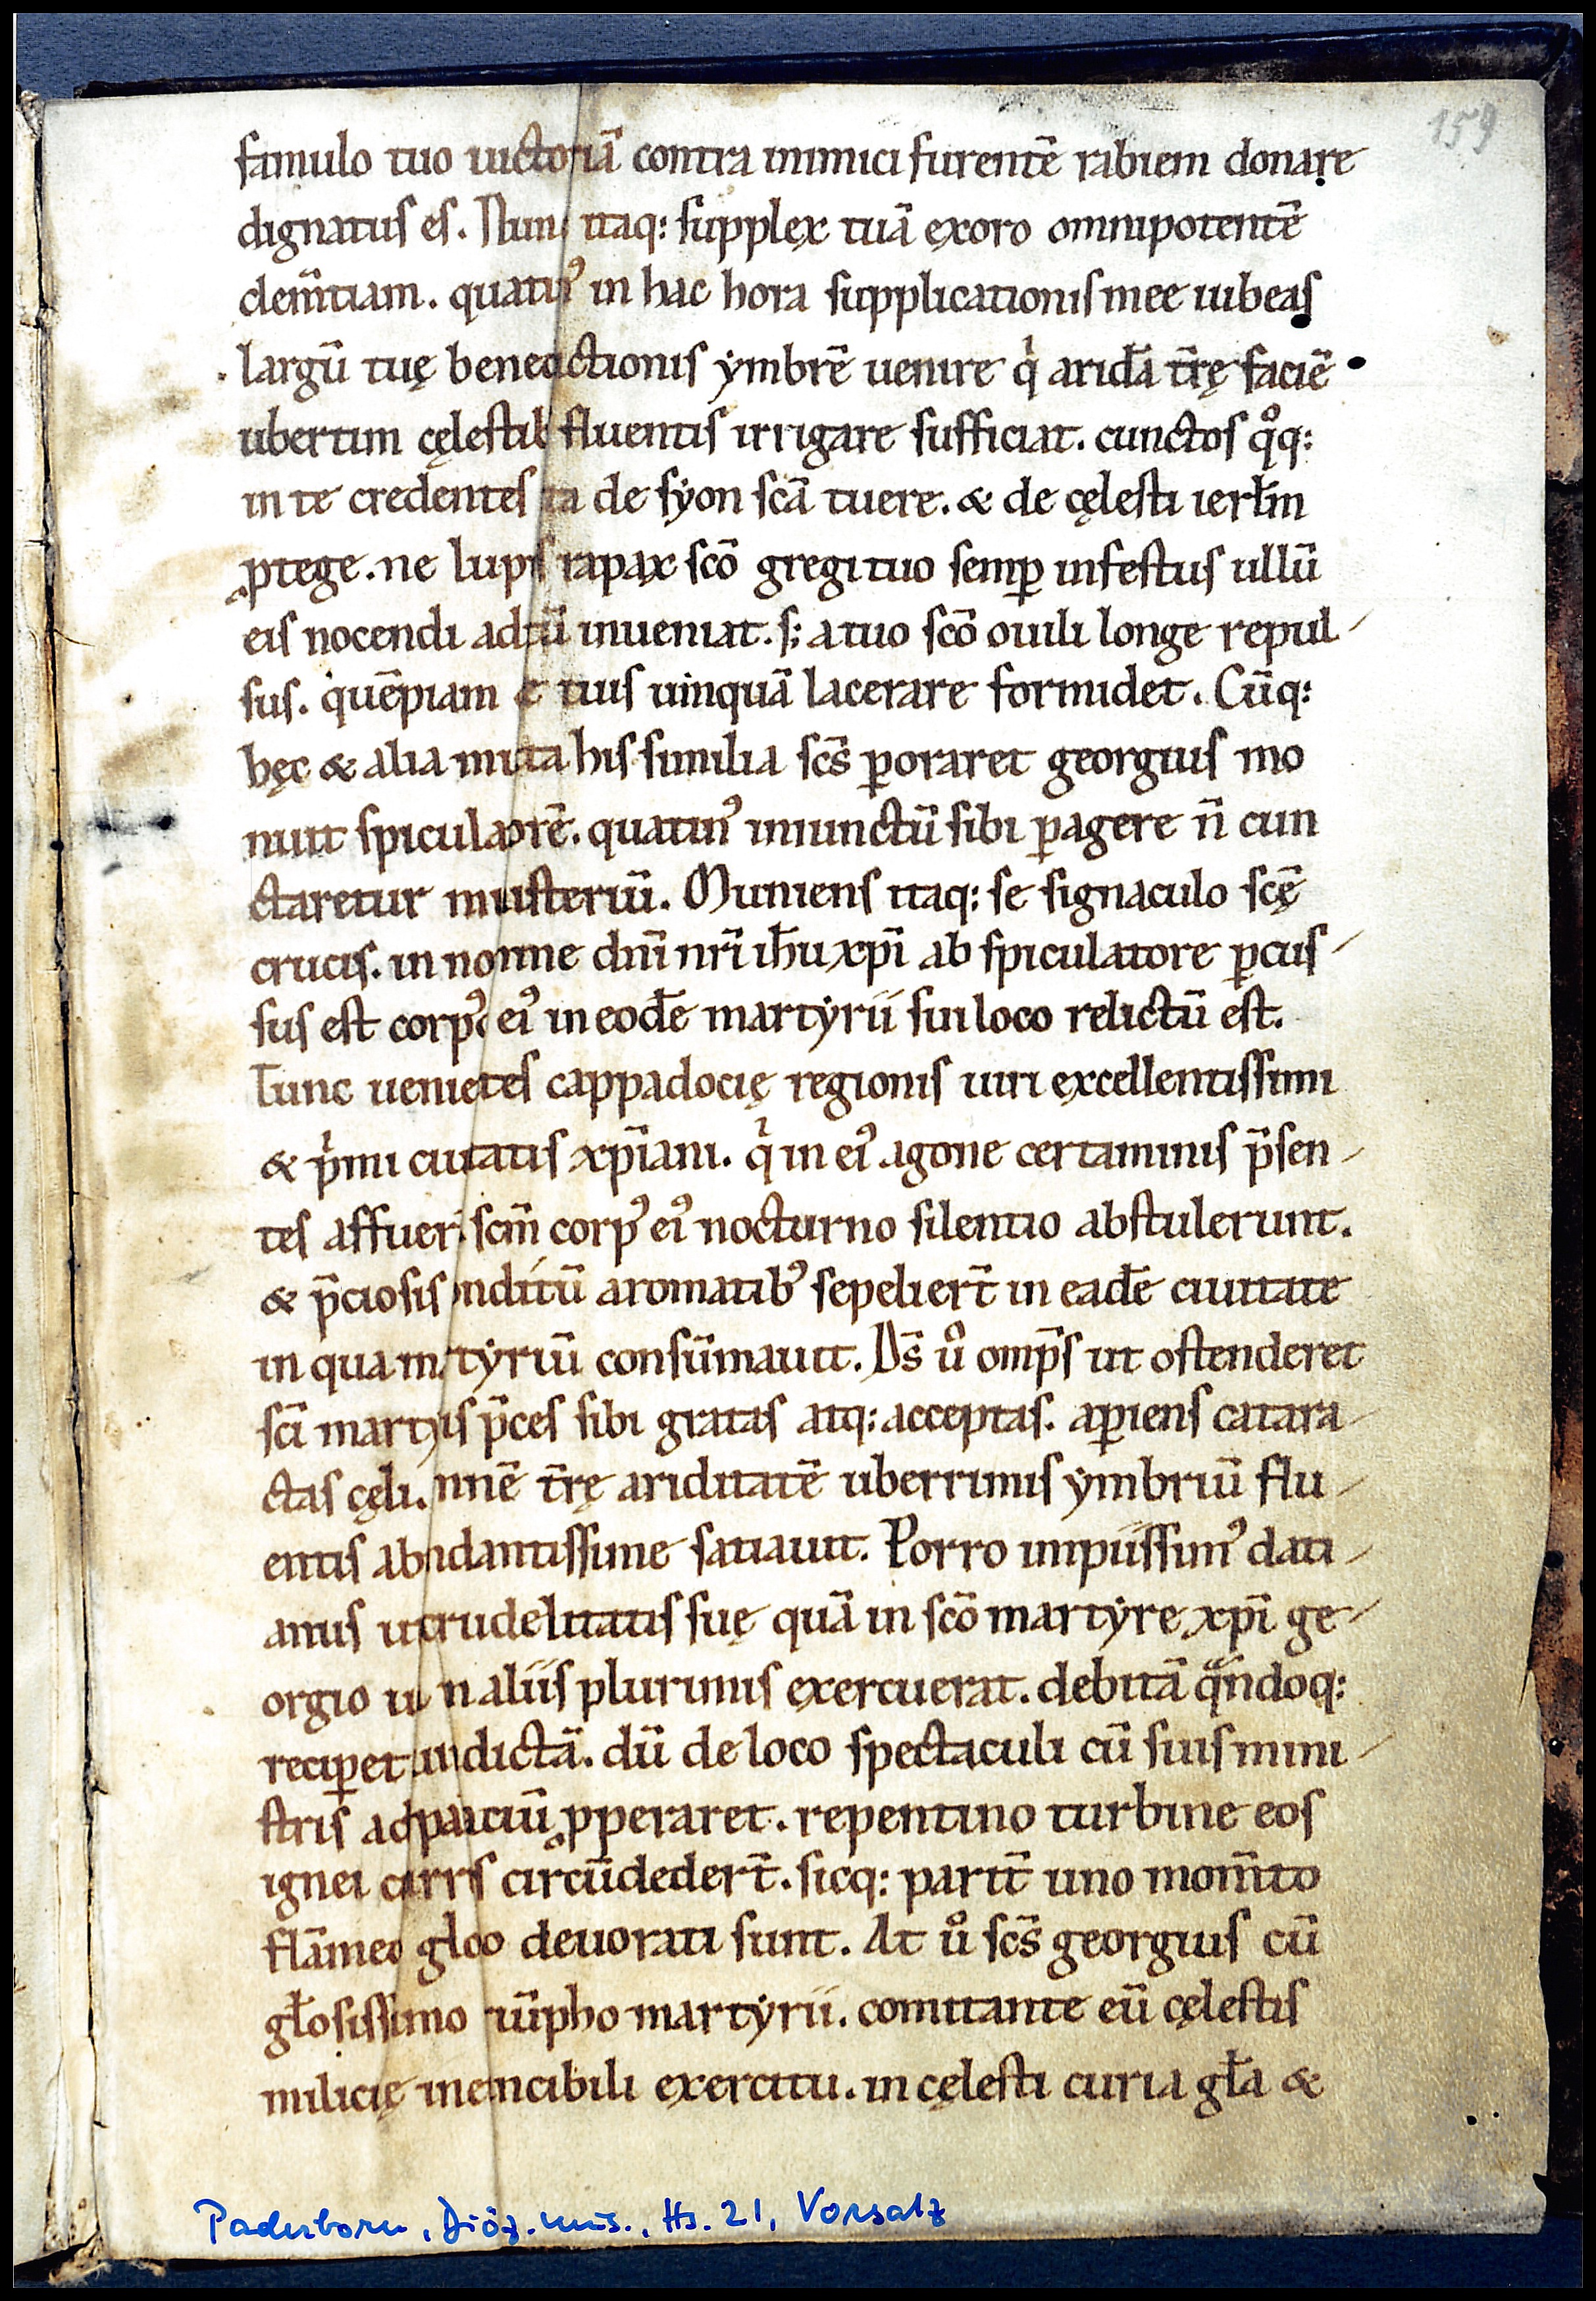 159
famulo tuo uictoriā contra inimici furentē rabiem donare
dignatus es. Nunc itaq: supplex tuā exoro omnipotentē
clem̄tiam. quatin᾿ in hac hora supplicationis mee iubeas
largū tuę benedictionis ymbrē uenire qͥ aridā t̄rę faciē
ubertim cęlestib fluentis irrigare sufficiat. cunctos qͦq:
in te credentes ita de syon scā tuere. & de cęlesti ierłm
ꝓtege. ne lupus rapax scō gregi tuo semꝑ infestus ullū
eis nocendi aditū inueniat. s; a tuo scō ouili longe repul
sus. quēpiam e tuis uinquā lacerare formidet. Cūq:
hęc & alia multa his similia scs̄ ꝑoraret georgius mo
nuit spiculatorē. quatin᾿ iniunctū sibi ꝑagere n̄ cun
ctaretur ministeriū. Muniens itaq: se signaculo scę̄
crucis. in nomine dnī nrī ih̄u xpī ab spiculatore ꝑcus
sus est corp᾿ ei᾿ in eodē martyrii sui loco relictū est.
Tunc uenientes cappadocię regionis uiri excellentissimi
& pͥmi ciuitatis xpīani. qͥ in ei᾿ agone certaminis p̄sen
tes affuer scm̄ corp᾿ ei᾿ nocturno silentio abstulerunt.
& p̄ciosis conditū aromatib᾿ sepeliert̄ in eadē ciuitate
in qua martyriū consūmauit. Ds̄ uͦ omp̄s ut ostenderet
scī martyris p̄ces sibi gratas atq: acceptas. aꝑiens catara
ctas cęli. omnē t̄rę ariditatē uberrimis ymbriū flu
entis abundantissime satiauit. Porro impiissim᾿ dati
anus ut crudelitatis suę quā in scō martyre xpī ge
orgio uel in aliis plurimis exercuerat. debitā qᵃndoq:
reciꝑet uindictā. dū de loco spectaculi cū suis mini
stris ad palaciū ꝓperaret. repentino turbine eos
ignei currus circūdedert̄. sicq: parit̄ uno mom̄to
flāmeo globo deuorati sunt. At uͦ scs̄ georgius cū
głosissimo triūpho martyrii. comitante eū cęlestis
milicię inuincibili exercitu. in cęlesti curia gła &
Paderborn, Diöz.mus., Hs. 21, Vorsatz